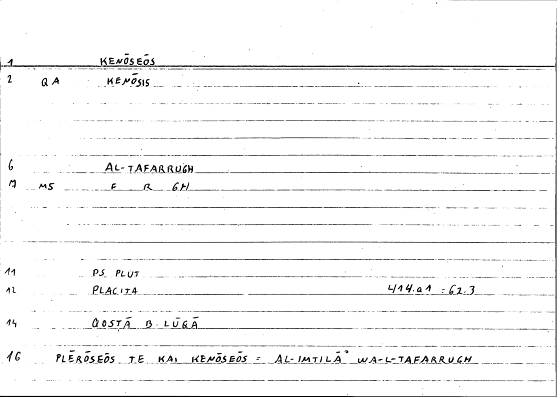 1 KENŌSEŌS
2 QA KENŌSIS
6 AL-TAFARRUGH
7 MS F R GH
11 PS. PLUT
12 PLACITA 414.a1 = 62.3
14 QOSṬĀ B LŪQĀ
16 PLĒRŌSEŌS TE KAI KENŌSEŌS = AL-IMTILĀʾ WA-L-TAFARRUGH